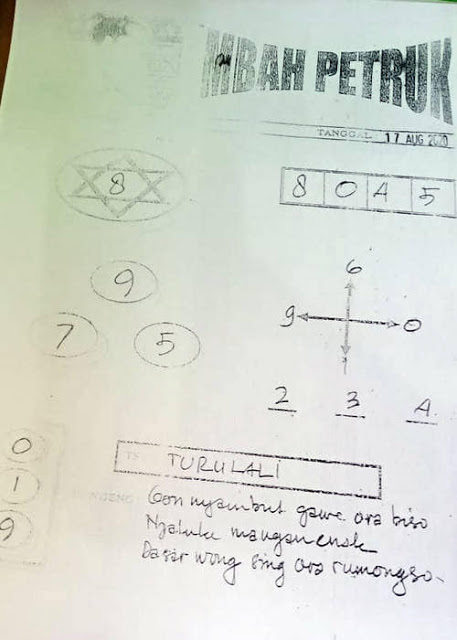 MBAH PETRUK
TANGGAL 17 AUG 2020
8
8 0 4 5
9
7 5
6
9 0
1
2 3 4
0
1
9
TURULALI
Gon nyambut gawe ora biso
Njaluke mangan enak
Dasar wong sing ora rumongso